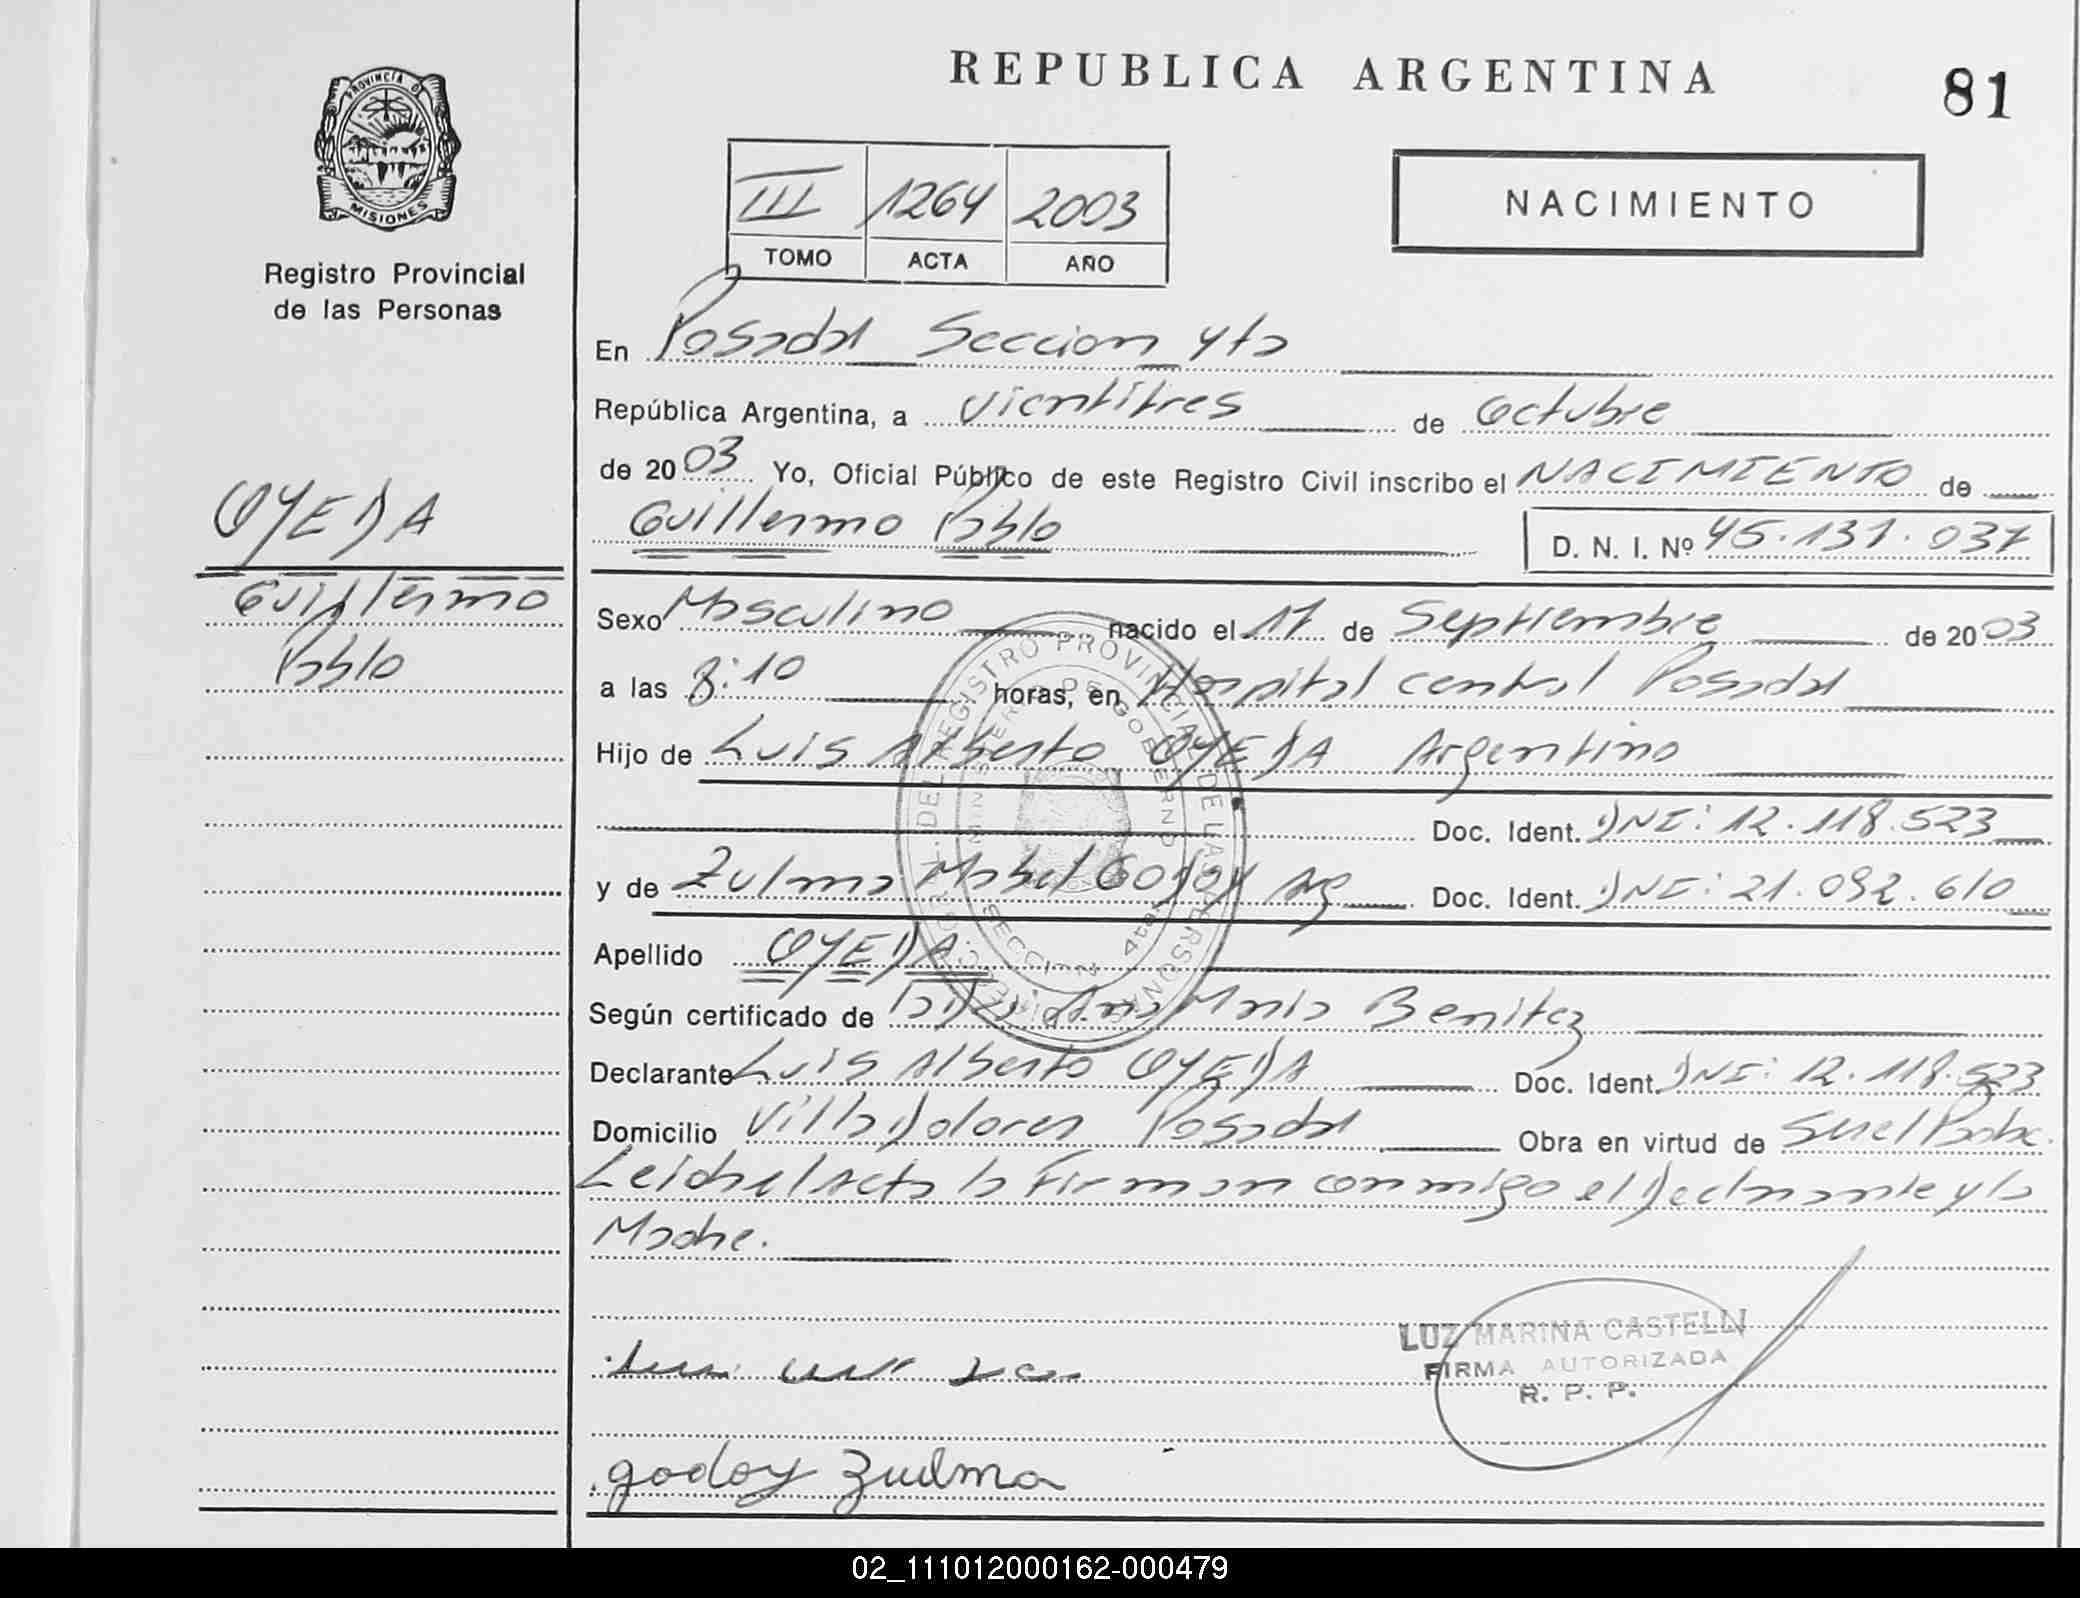 REPUBLICA ARGENTINA
81
PROVINCIA D
MISIONES
Registro Provincial
de las Personas
III 1264 2003
TOMO ACTA AÑO
NACIMIENTO
En Posadas Seccion 4ta
República Argentina, a vientitres de Octubre
de 2003 Yo, Oficial Público de este Registro Civil inscribo el NACIMIENTO de
Guillermo Pablo
D. N. I. Nº 45.131.037
OYEDA
Guillermo
Pablo
Sexo Masculino nacido el 17 de Septiembre de 2003
a las 8:10 horas, en Hospital central Posadas
Hijo de Luis Alberto OYEDA Argentino
Doc. Ident. DNI: 12.118.523
y de Zulma Mabel Godoy Arg Doc. Ident. DNI: 21.092.610
Apellido OYEDA
Según certificado de Ana Maria Benitez
Declarante Luis Alberto OYEDA Doc. Ident. DNI: 12.118.523
Domicilio Villa Dolores Posadas Obra en virtud de
Leida el acta la Firman conmigo el Declarante y la
Madre.
LUZ MARINA CASTELLI
FIRMA AUTORIZADA
R. P. P.
godoy Zulma
02_111012000162-000479